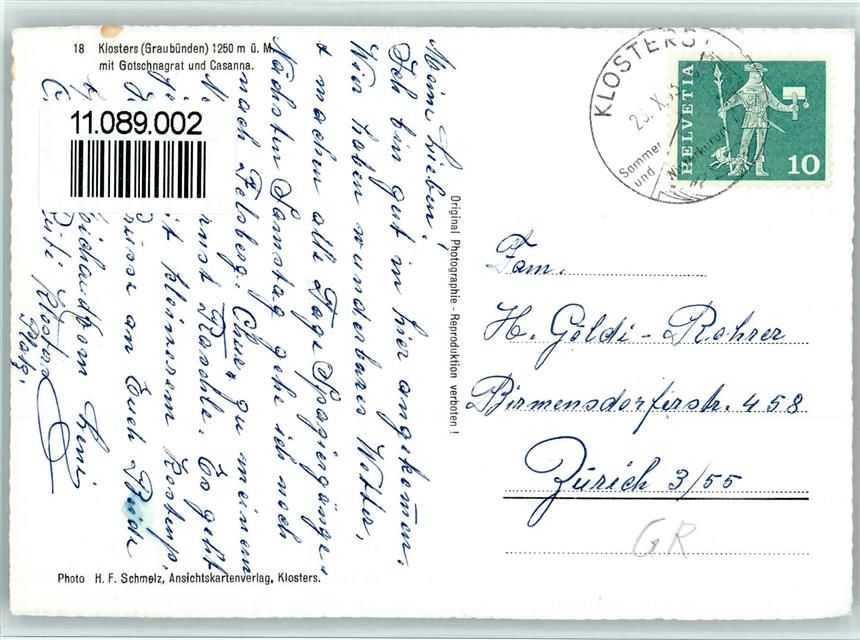 18 Klosters (Graubünden) 1250 m ü. M.
mit Gotschnagrat und Casanna.
11.089.002
Meine Lieben!
Ich bin gut in hier angekomen.
Wir haben wunderbares Wetter,
+ machen alle Tage Spaziergänge.
Nächsten Samstag gehe ich noch
nach Felsberg. Chur zu meinem
Es geht
kleinerem
an Euch Beide
Leni
Klosters
Platz.
Original Photographie - Reproduktion verboten !
KLOSTERS
Sommer
und
HELVETIA
10
Fam.
H. Göldi - Rohrer
Birmensdorferstr. 458
Zürich 3/55
GR
Photo H. F. Schmelz, Ansichtskartenverlag, Klosters.